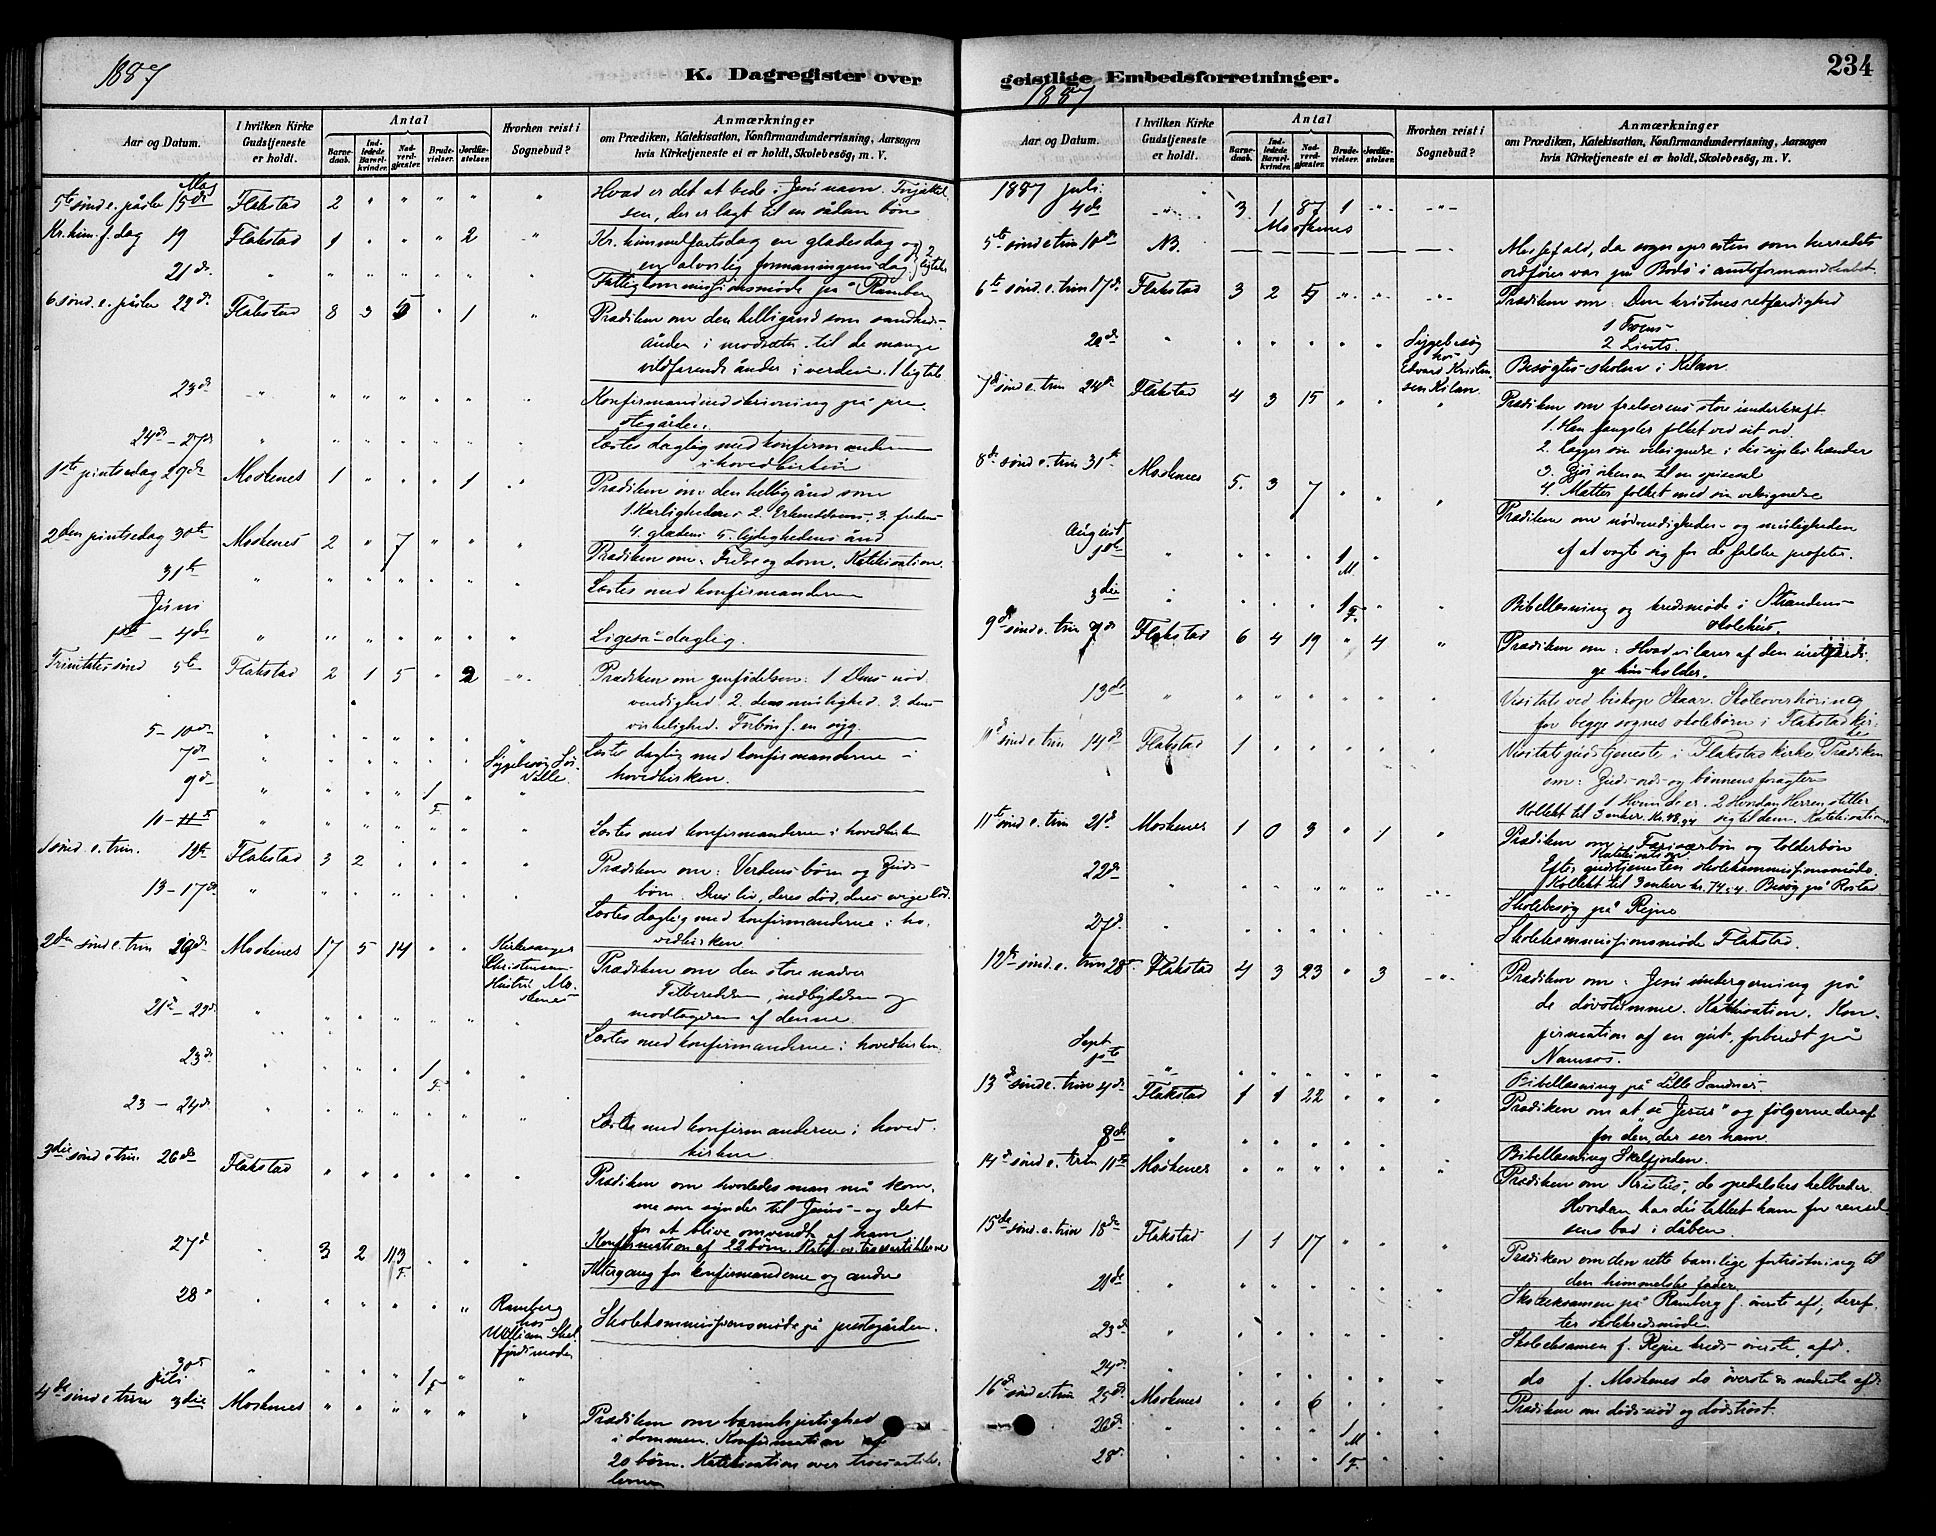 1887
K. Dagregister over
Aar og Datum.
I hvilken Kirke Gudstjeneste er holdt.
Antal
Barnedaab.
Indledede Barselkvinder.
Nadverdgjæster.
Brudevielser.
Jordfæstelser.
Hvorhen reist i Sognebud?
Anmærkninger
om Prædiken, Katekisation, Konfirmandundervisning, Aarsagen
hvis Kirketjeneste ei er holdt, Skolebesøg, m. V.
5te sønd. e. påske Maj 15de Flakstad 2 " " " " " Hvad er det at bede i Jesu nam.
sen, der er lagt til en sådan bøn
Kr. him. f. dag 19 Flakstad 1 " " " 2 " Kr. himmelfartsdag en glædesdag og
en alvorlig formaningens dag. 2 ligtaler
21de " " " " " " " Fattigkommissionsmøde på Ramberg
6 sønd. e. påske 22de Flakstad 8 3 5 " 1 " Prædiken om den helligånd som sandheds-
ånden i modsætn. til de mange
vildfarende ånder i verden. 1 ligtale
23de " " " " " " " Konfirmandindskrivning på præ-
stegården.
24de - 27de " " " " " " " Læstes daglig med konfirmanderne
i hovedkirken
1ste pintsedag 29de Moskenes 1 " " " 1 " Prædiken om den hellig ånd som
1 Kærlighedens 2. Erkendelsens 3. fredens
4. glædens 5. lydighedens ånd
2den pintsedag 30te Moskenes 2 " 7 " " " Prædiken om: Frelse og dom. Katekisation.
31te " " " " " " " Læstes med konfirmanderne
Juni
1ste - 4de " " " " " " " Ligeså daglig.
Trinitatissønd 5te Flakstad 2 1 5 " 2 " Prædiken om genfødelsen: 1 Dens nød-
vendighed 2. dens mulighed 3. dens
virkelighed. Forbøn f. en syg.
5 - 10de " " " " " " " Læstes daglig med konfirmanderne i
hovedkirken.
7de " " " " " " Sygebesøg Sør
Valle.
9de " " " " 1 F. " "
10 - 11te " " " " " " " Læstes med konfirmanderne i hovedkirken
1 sønd. e. trin. 12te Flakstad 3 2 " " " " Prædiken om: Verdens børn og Guds
børn. Deres liv, deres død, deres evige lod.
13 - 17de " " " " " " " Læstes daglig med konfirmanderne i ho-
vedkirken
2den sønd e. trin 19de Moskenes 17 5 14 " " Kirkesanger
Christensens
Hustru Mo-
skenes
Prædiken om den store nadver
Tilberedelsen, indbydelsen og
modtagelsen af denne.
21de - 23de " " " " " " " Læstes med konfirmanderne i hovedkirken
23de " " " " 1 F. " "
23 - 24de " " " " " " " Læst med konfirmanderne i hoved-
kirken
3die sønd e trin. 26de Flakstad " " " " " " Prædiken om hvorledes man må kom-
me som synder til Jesus - og det
for at blive omvendt af ham
Konfirmation af 22 børn. Katek. ov. trosartiklerne
27de " 3 2 113 F. " " " Altergang for konfirmanderne og andre
28 " " " " " " Ramberg
hos
William Skel-
fjords moder
Skolekommissionsmøde på prestegården.
30te " " " " 1 F " "
juli
4de sønd e trin 3die Moskenes " " " " " " Prædiken om barmhjertighed
i dommen. Konfirmation af
20 børn. Katekisation over trosartik-
lerne
geistlige Embedsforretninger.
234
1887
Aar og Datum.
I hvilken Kirke Gudstjeneste er holdt.
Antal
Barnedaab.
Indledede Barselkvinder.
Nadverdgjæster.
Brudevielser.
Jordfæstelser.
Hvorhen reist i Sognebud?
Anmærkninger
om Prædiken, Katekisation, Konfirmandundervisning, Aarsagen
hvis Kirketjeneste ei er holdt, Skolebesøg, m. V.
1887 juli
4de " 3 1 87 1 " "
Moskenes
5te sønd e trin 10de NB. Messefald, da sognepresten som herreds-
ordfører var på Bodø i amtsformandskabet.
6te sønd. e. trin 17de Flakstad 3 2 5 " " " Prædiken om: Den kristnes retfærdighed
1 Troens
2 Livets.
20de " " " " " " Sygebesøg
hos
Edvard Kristian-
sen Kilan
Besøgtes skolen i Kilan
7de sønd e trin 24de Flakstad 4 3 15 " " " Prædiken om frelserens store underkraft
1. Han fængsler folket ved sit ord
2. Lægger sin velsignelse i disciples hænder
3. Gjør ørkenen til en spisesal
4. Mætter folket med sin velsignelse
8de sønd e. trin 31te Moskenes 5. 3 7 " " " Prædiken om nødvendigheden og muligheden
af at vogte sig for de falske profeter.
August
1ste " " " " 1 M. " "
3die " " " " 1 F. " " Bibellæsning og kredsmøde i Strandens
skolehus.
9de sønd e. trin 7de Flakstad 6 4 19 " 4 " Prædiken om: Hvad vi lærer af den uretfærdi-
ge husholder.
13de " " " " " " " Visitats ved biskop Skaar. Skoleoverhøring
for begge sognes skolebørn i Flakstad kir-
ke
sønd e. trin 14de Flakstad 1 " " " " " Visitatsgudstjeneste i Flakstad kirke. Prædiken
om: Guds ords og bønnens foragtere
1 Hvem de er. 2 Hvordan Herren stiller
sig til dem. Katekisation
Kollekt til 3 enker
11te sønd e. trin 21de Moskenes 1 0 3 " 1 " Prædiken om Farisæerbøn og tolderbøn
Katekisation
Efter gudstjenesten skolekommissionsmøde.
Kollekt til 3 enker Besøg på Rostad
22de " " " " " " " Skolebesøg på Rejne
27de " " " " " " " Skolekommissionsmøde Flakstad.
12te sønd. e. trin 28de Flakstad 4 3 23 " 3 " Prædiken om: Jesu undergerning på
de døvstumme. Katekisation. Kon-
firmation af en gut, forberedt på
Namsos.
Sept
1ste " " " " " " " Bibellæsning på Lille Sandnes
13de sønd e. trin 4de Flakstad 1 1 22 " " " Prædiken om at se "Jesus" og følgerne deraf
for den, der ser ham.
8de " " " " " " " Bibellæsning Skelfjorden.
14de sønd e. trin 11te Moskenes " " " " " " Prædiken om Kristus de spedalskes helbreder
Hvordan har du takket ham for rensel-
sens bad i dåben.
15de sønd. e. trin 18de Flakstad 1 1 17 " " " Prædiken om den rette barnlige fortrøstning til
den himmelske fader.
21de " " " " " " " Skoleeksamen på Ramberg f. øverste afd, deref-
ter skolekredsmøde
23de " " " " " " " Skoleeksamen f. Rejne kreds øverste afd.
24de " " " " " " " do f. Moskenes do øverste & nederste afd.
16de sønd e. trin 25de Moskenes " " 6 " " " Prædiken om dødsnød og dødstrøst.
26de " " " " 1 M " "
28de " " " " 1 F. " "